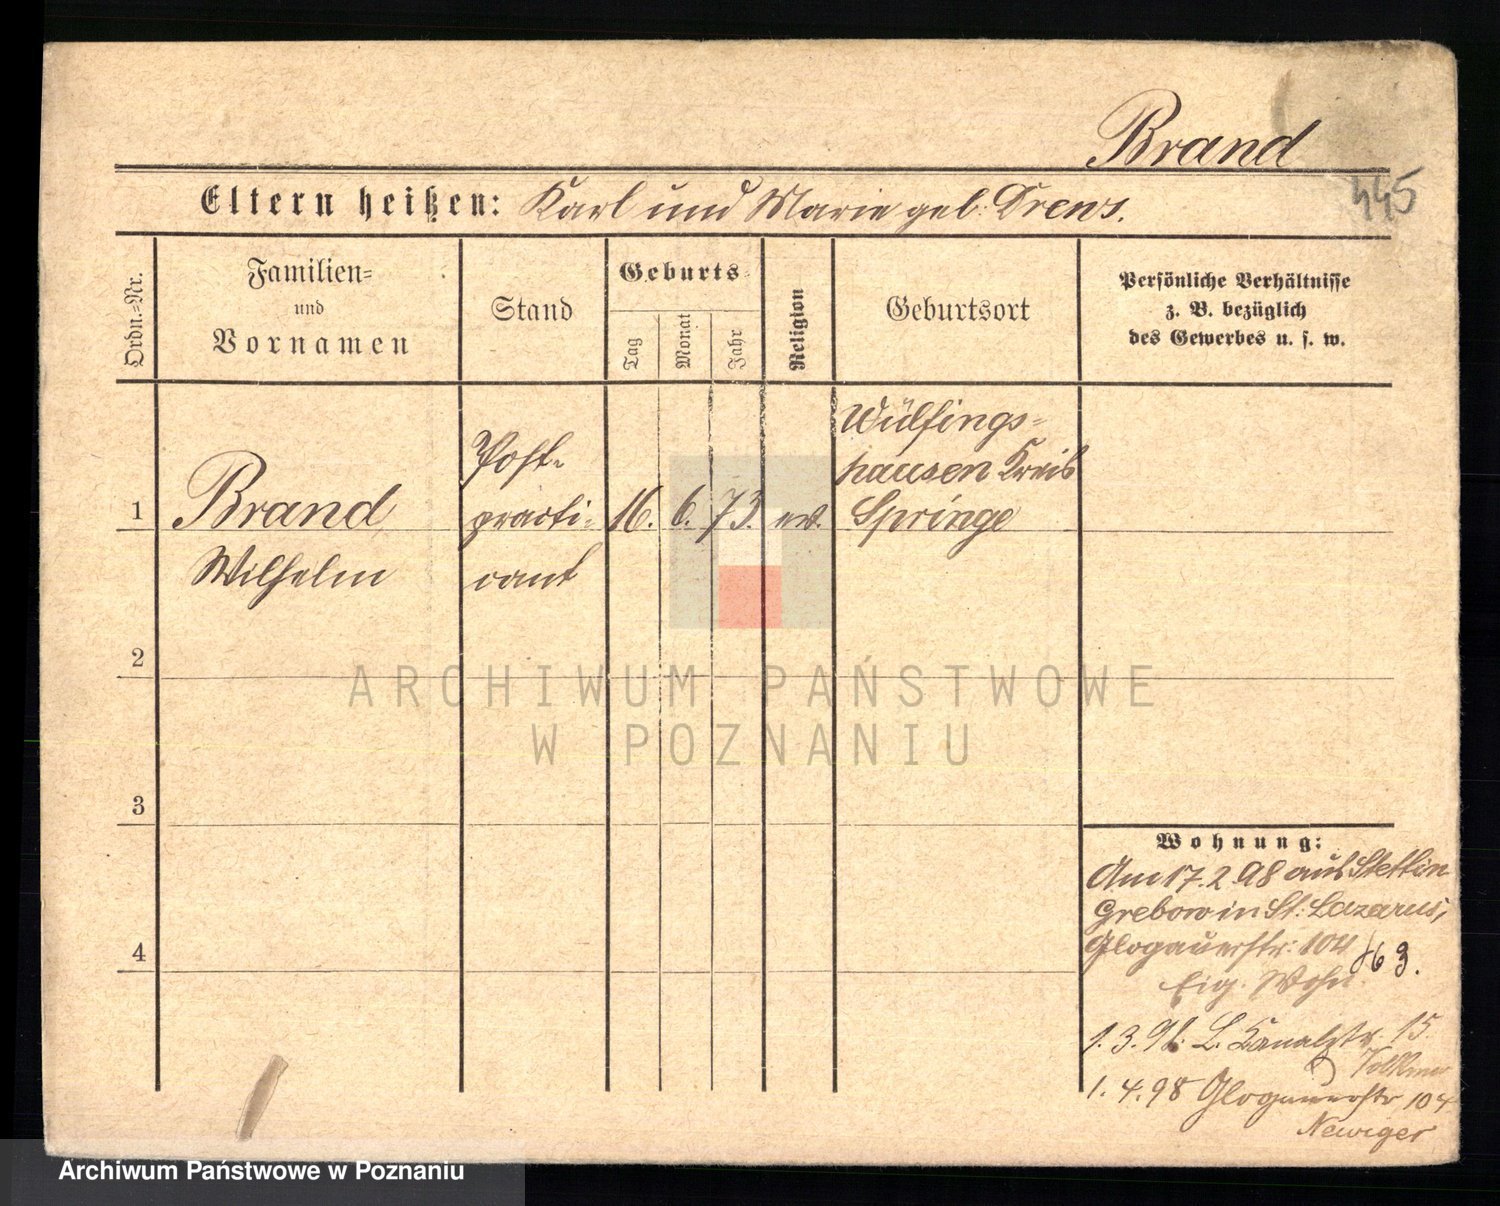 Brand
445
Eltern heißen: Karl und Marie geb. Drews.
Ordn.-Nr.
Familien-
und
Vornamen
Stand
Geburts-
Tag
Monat
Jahr
Religion
Geburtsort
Persönliche Verhältnisse
z. B. bezüglich
des Gewerbes u. s. w.
1
Brand
Wilhelm
Post-
practi-
cant
16. 6. 73. ev.
Wülfings-
hausen Kreis
Springe
2
3
4
Wohnung:
Am 17.2.98 aus Stettin
Grebow in St. Lazarus,
Glogauerstr: 104
63.
Eig. Wohn.
1.3.98. L. Kanalstr. 15
1.4.98 Glogauerstr 104
Neuviger
ARCHIWUM PAŃSTWOWE
W POZNANIU
Archiwum Państwowe w Poznaniu